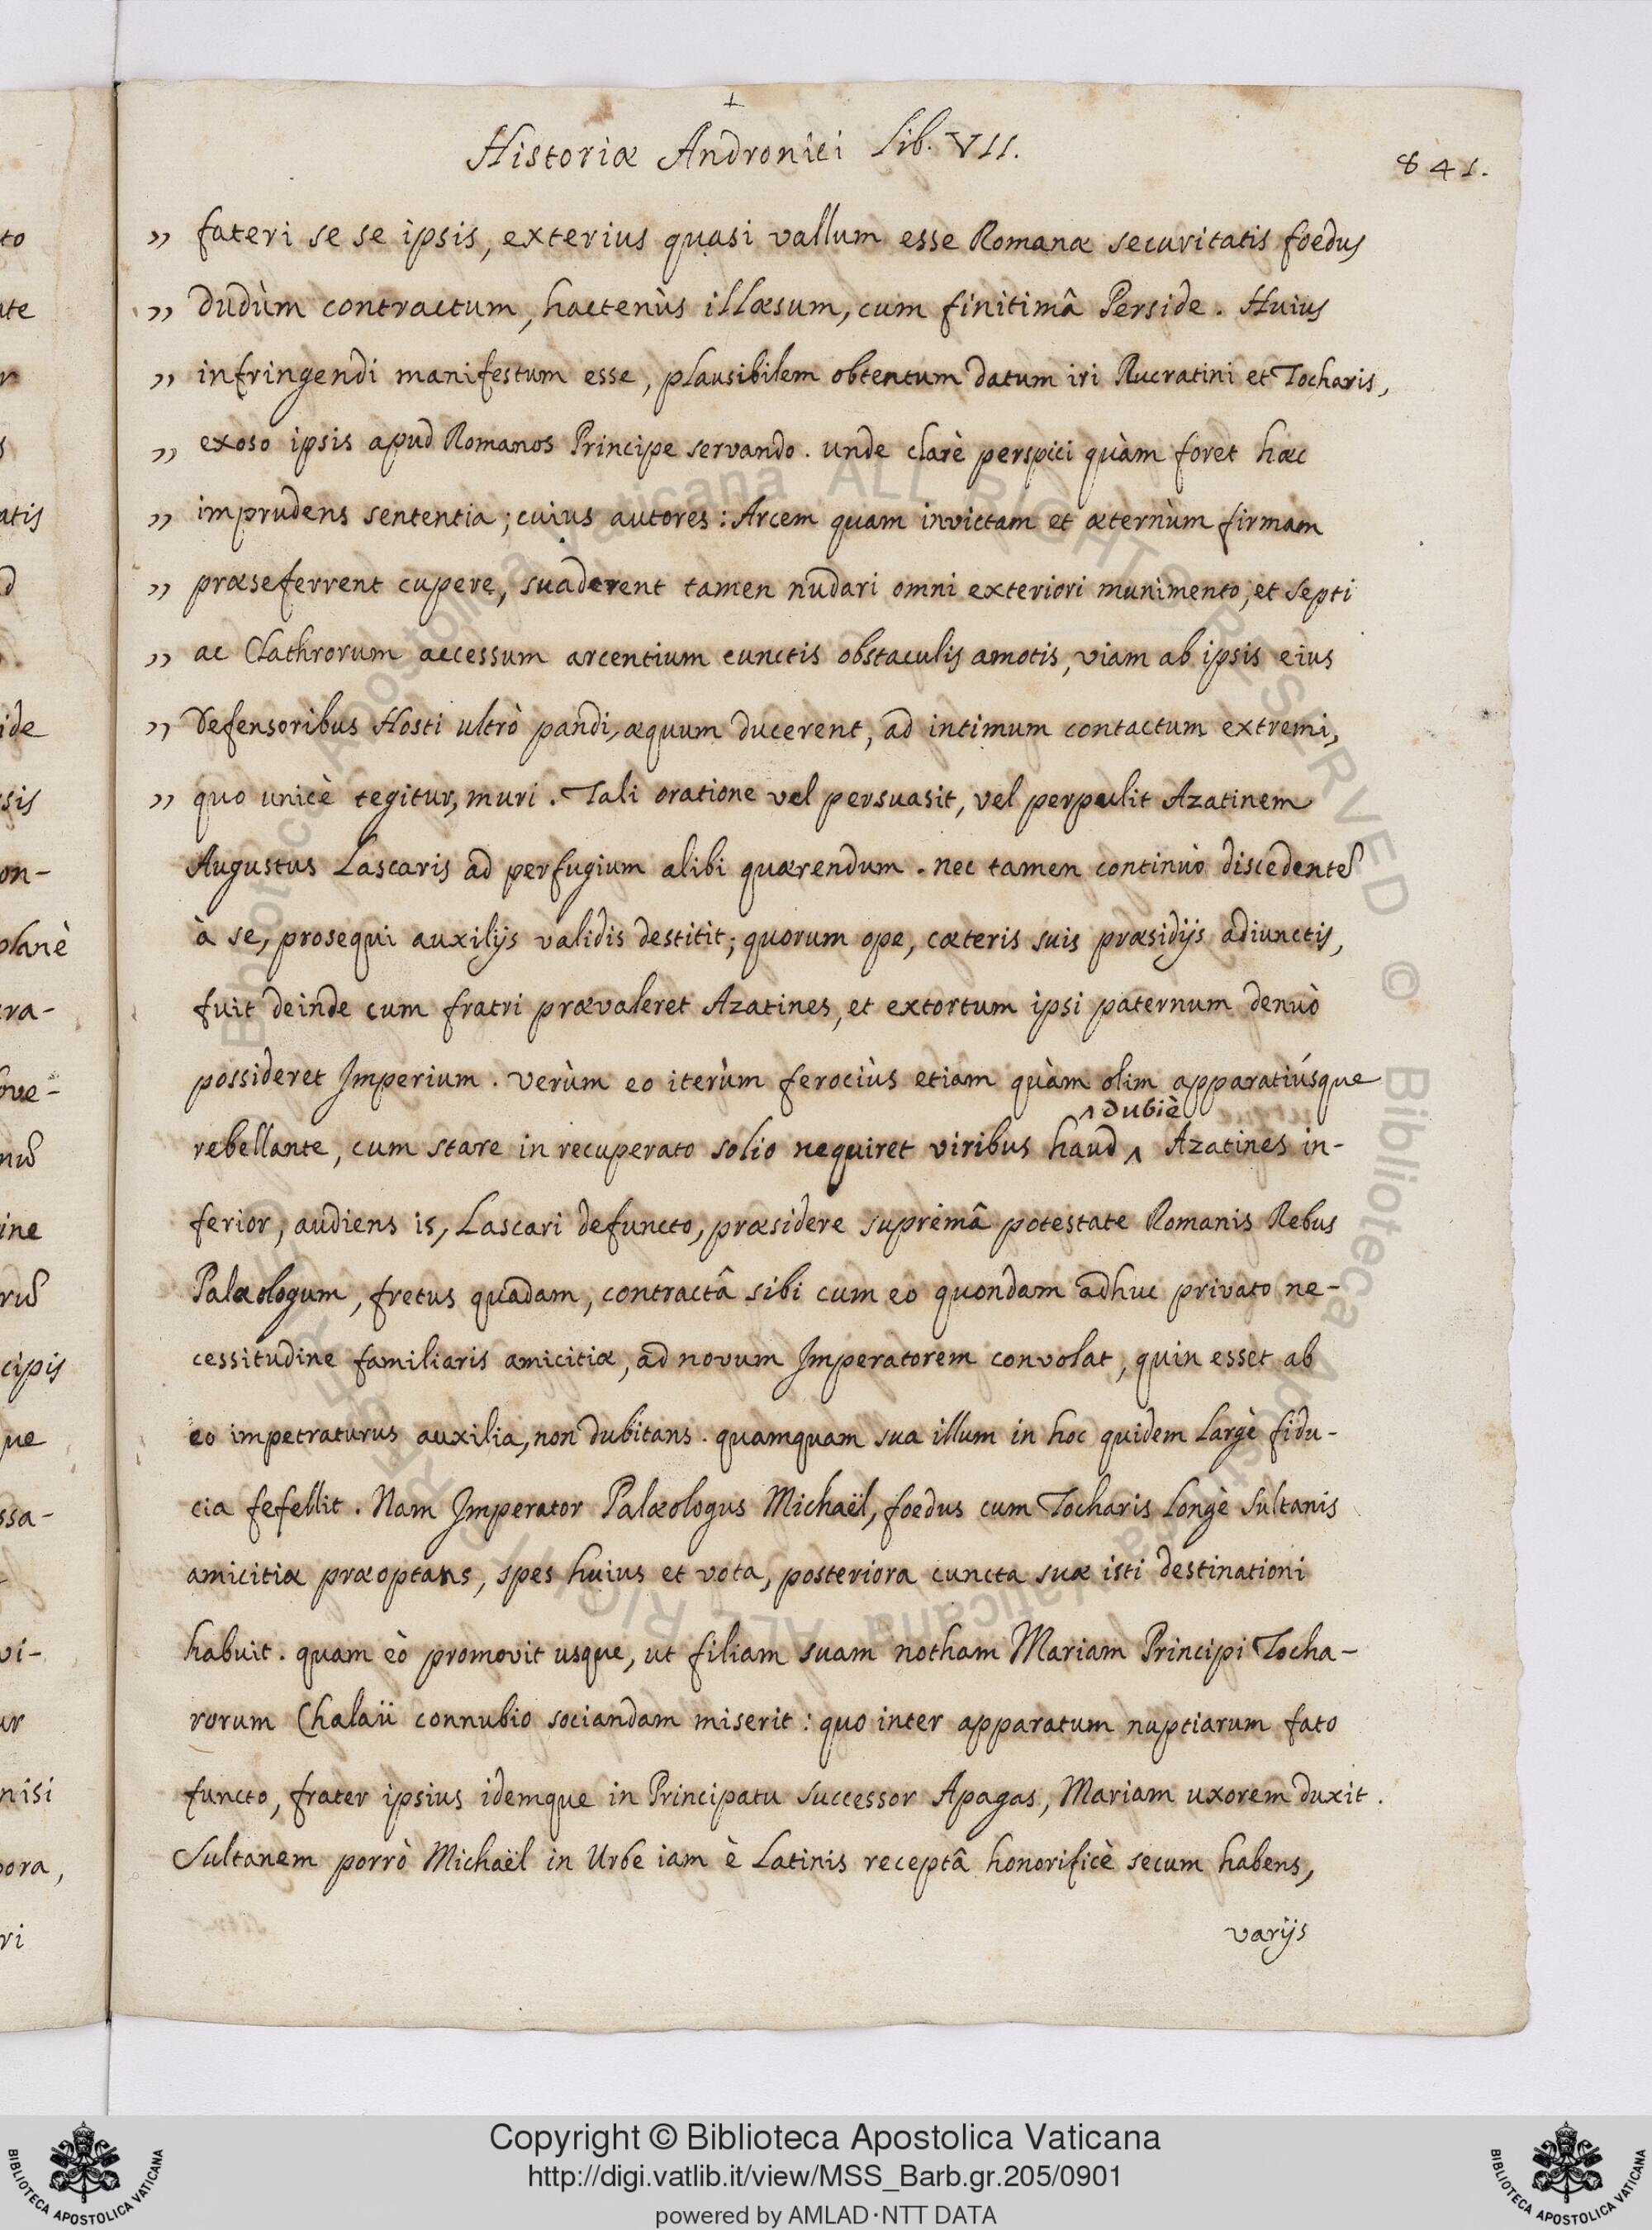 +
Historiæ Andronici Lib. VII.
841.
„ fateri se se ipsis, exterius quasi vallum esse Romanæ securitatis foedus
„ dudùm contractum, hactenùs illæsum, cum finitimâ Perside. Huius
„ infringendi manifestum esse, plausibilem obtentum datum iri Rucratini et Tocharis,
„ exoso ipsis apud Romanos Principe servando. unde clarè perspici quàm foret hæc
„ imprudens sententia; cuius autores: Arcem quam invictam et æternùm firmam
„ præseferrent cupere, suaderent tamen nudari omni exteriori munimento, et septi
„ ac Clathrorum accessum arcentium cunctis obstaculis amotis, viam ab ipsis eius
„ Defensoribus Hosti ultrò pandi, æquum ducerent, ad intimum contactum extremi,
„ quo unicè tegitur, muri. Tali oratione vel persuasit, vel perpulit Azatinem
Augustus Lascaris ad perfugium alibi quærendum. nec tamen continuò discedentem
à se, prosequi auxilijs validis destitit; quorum ope, cæteris suis præsidijs adiunctis,
fuit deinde cum fratri prævaleret Azatines, et extortum ipsi paternum denuò
possideret Imperium. Verùm eo iterùm ferociùs etiam quàm olim apparatiúsque
rebellante, cum stare in recuperato solio nequiret viribus haud ^ dubiè Azatines in-
ferior, audiens is, Lascari defuncto, præsidere supremâ potestate Romanis Rebus
Palæologum, fretus quadam, contractâ sibi cum eo quondam adhuc privato ne-
cessitudine familiaris amicitiæ, ad novum Imperatorem convolat, quin esset ab
eo impetraturus auxilia, non dubitans. quamquam sua illum in hoc quidem largè fidu-
cia fefellit. Nam Imperator Palæologus Michaël, foedus cum Tocharis longè Sultanis
amicitiæ præoptans, spes huius et vota, posteriora cuncta suæ isti destinationi
habuit. quam eò promovit usque, ut filiam suam notham Mariam Principi Tocha-
rorum Chalaü connubio sociandam miserit: quo inter apparatum nuptiarum fato
functo, frater ipsius idemque in Principatu successor Apagas, Mariam uxorem duxit.
Sultanem porrò Michaël in Urbe iam è Latinis receptâ honorificè secum habens,
varijs
Copyright © Biblioteca Apostolica Vaticana
http://digi.vatlib.it/view/MSS_Barb.gr.205/0901
powered by AMLAD·NTT DATA